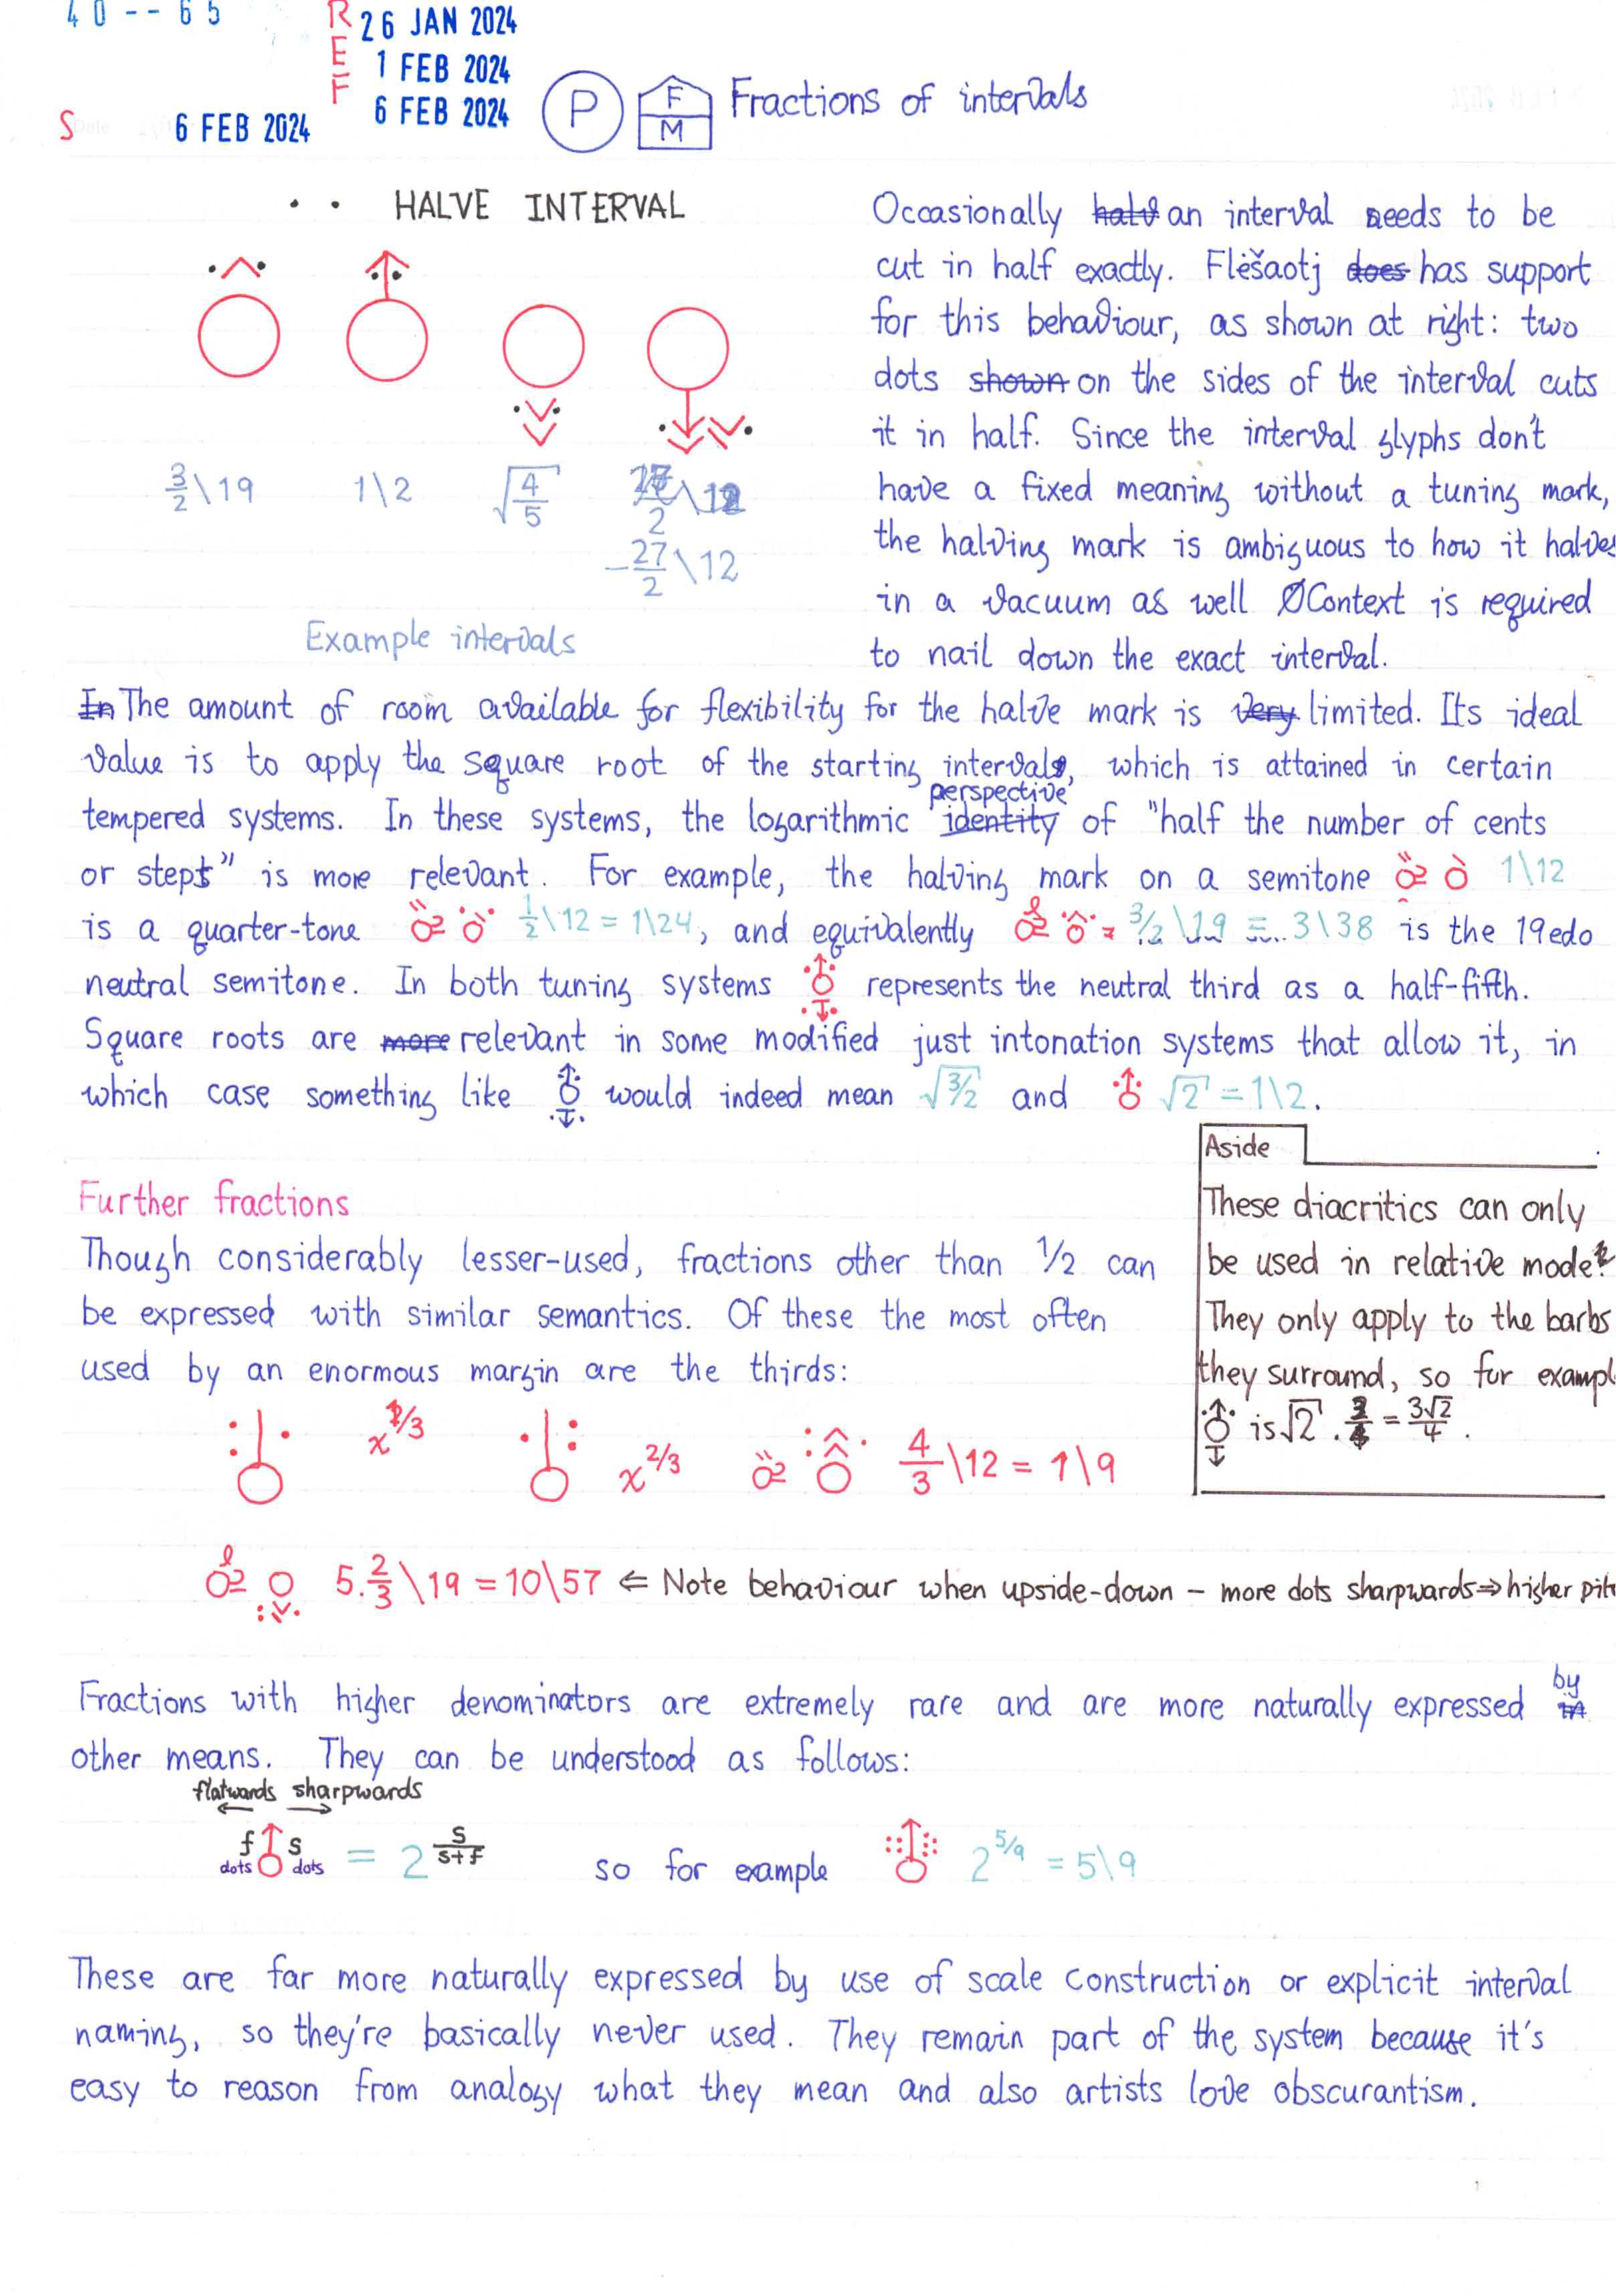 40--65
REF
26 JAN 2024
1 FEB 2024
6 FEB 2024
S 6 FEB 2024
P F M Fractions of intervals
· · HALVE INTERVAL
3/2\19 1\2 √4/5 27/2\12
-27/2\12
Example intervals
Occasionally halv an interval needs to be
cut in half exactly. Flėšaotj does has support
for this behaviour, as shown at right: two
dots shown on the sides of the interval cuts
it in half. Since the interval glyphs don't
have a fixed meaning without a tuning mark,
the halving mark is ambiguous to how it halves
in a vacuum as well Context is required
to nail down the exact interval.
In The amount of room available for flexibility for the halve mark is very limited. Its ideal
value is to apply the square root of the starting interval, which is attained in certain
tempered systems. In these systems, the logarithmic identity perspective of "half the number of cents
or steps" is more relevant. For example, the halving mark on a semitone 1\12
is a quarter-tone 1/2\12 = 1\24, and equivalently 3/2\19 = 3\38 is the 19edo
neutral semitone. In both tuning systems represents the neutral third as a half-fifth.
Square roots are more relevant in some modified just intonation systems that allow it, in
which case something like would indeed mean √3/2 and √2 = 1\2.
Aside
These diacritics can only
be used in relative mode.
They only apply to the barbs
they surround, so for exampl
is √2 . 3/4 = 3√2/4 .
Further fractions
Though considerably lesser-used, fractions other than 1/2 can
be expressed with similar semantics. Of these the most often
used by an enormous margin are the thirds:
x^1/3 x^2/3 4/3\12 = 1\9
5.2/3\19 = 10\57 ⇐ Note behaviour when upside-down – more dots sharpwards ⇒ higher pit
Fractions with higher denominators are extremely rare and are more naturally expressed in by
other means. They can be understood as follows:
flatwards sharpwards
← →
f dots s dots = 2^s/s+f so for example 2^5/9 = 5\9
These are far more naturally expressed by use of scale construction or explicit interval
naming, so they're basically never used. They remain part of the system because it's
easy to reason from analogy what they mean and also artists love obscurantism.